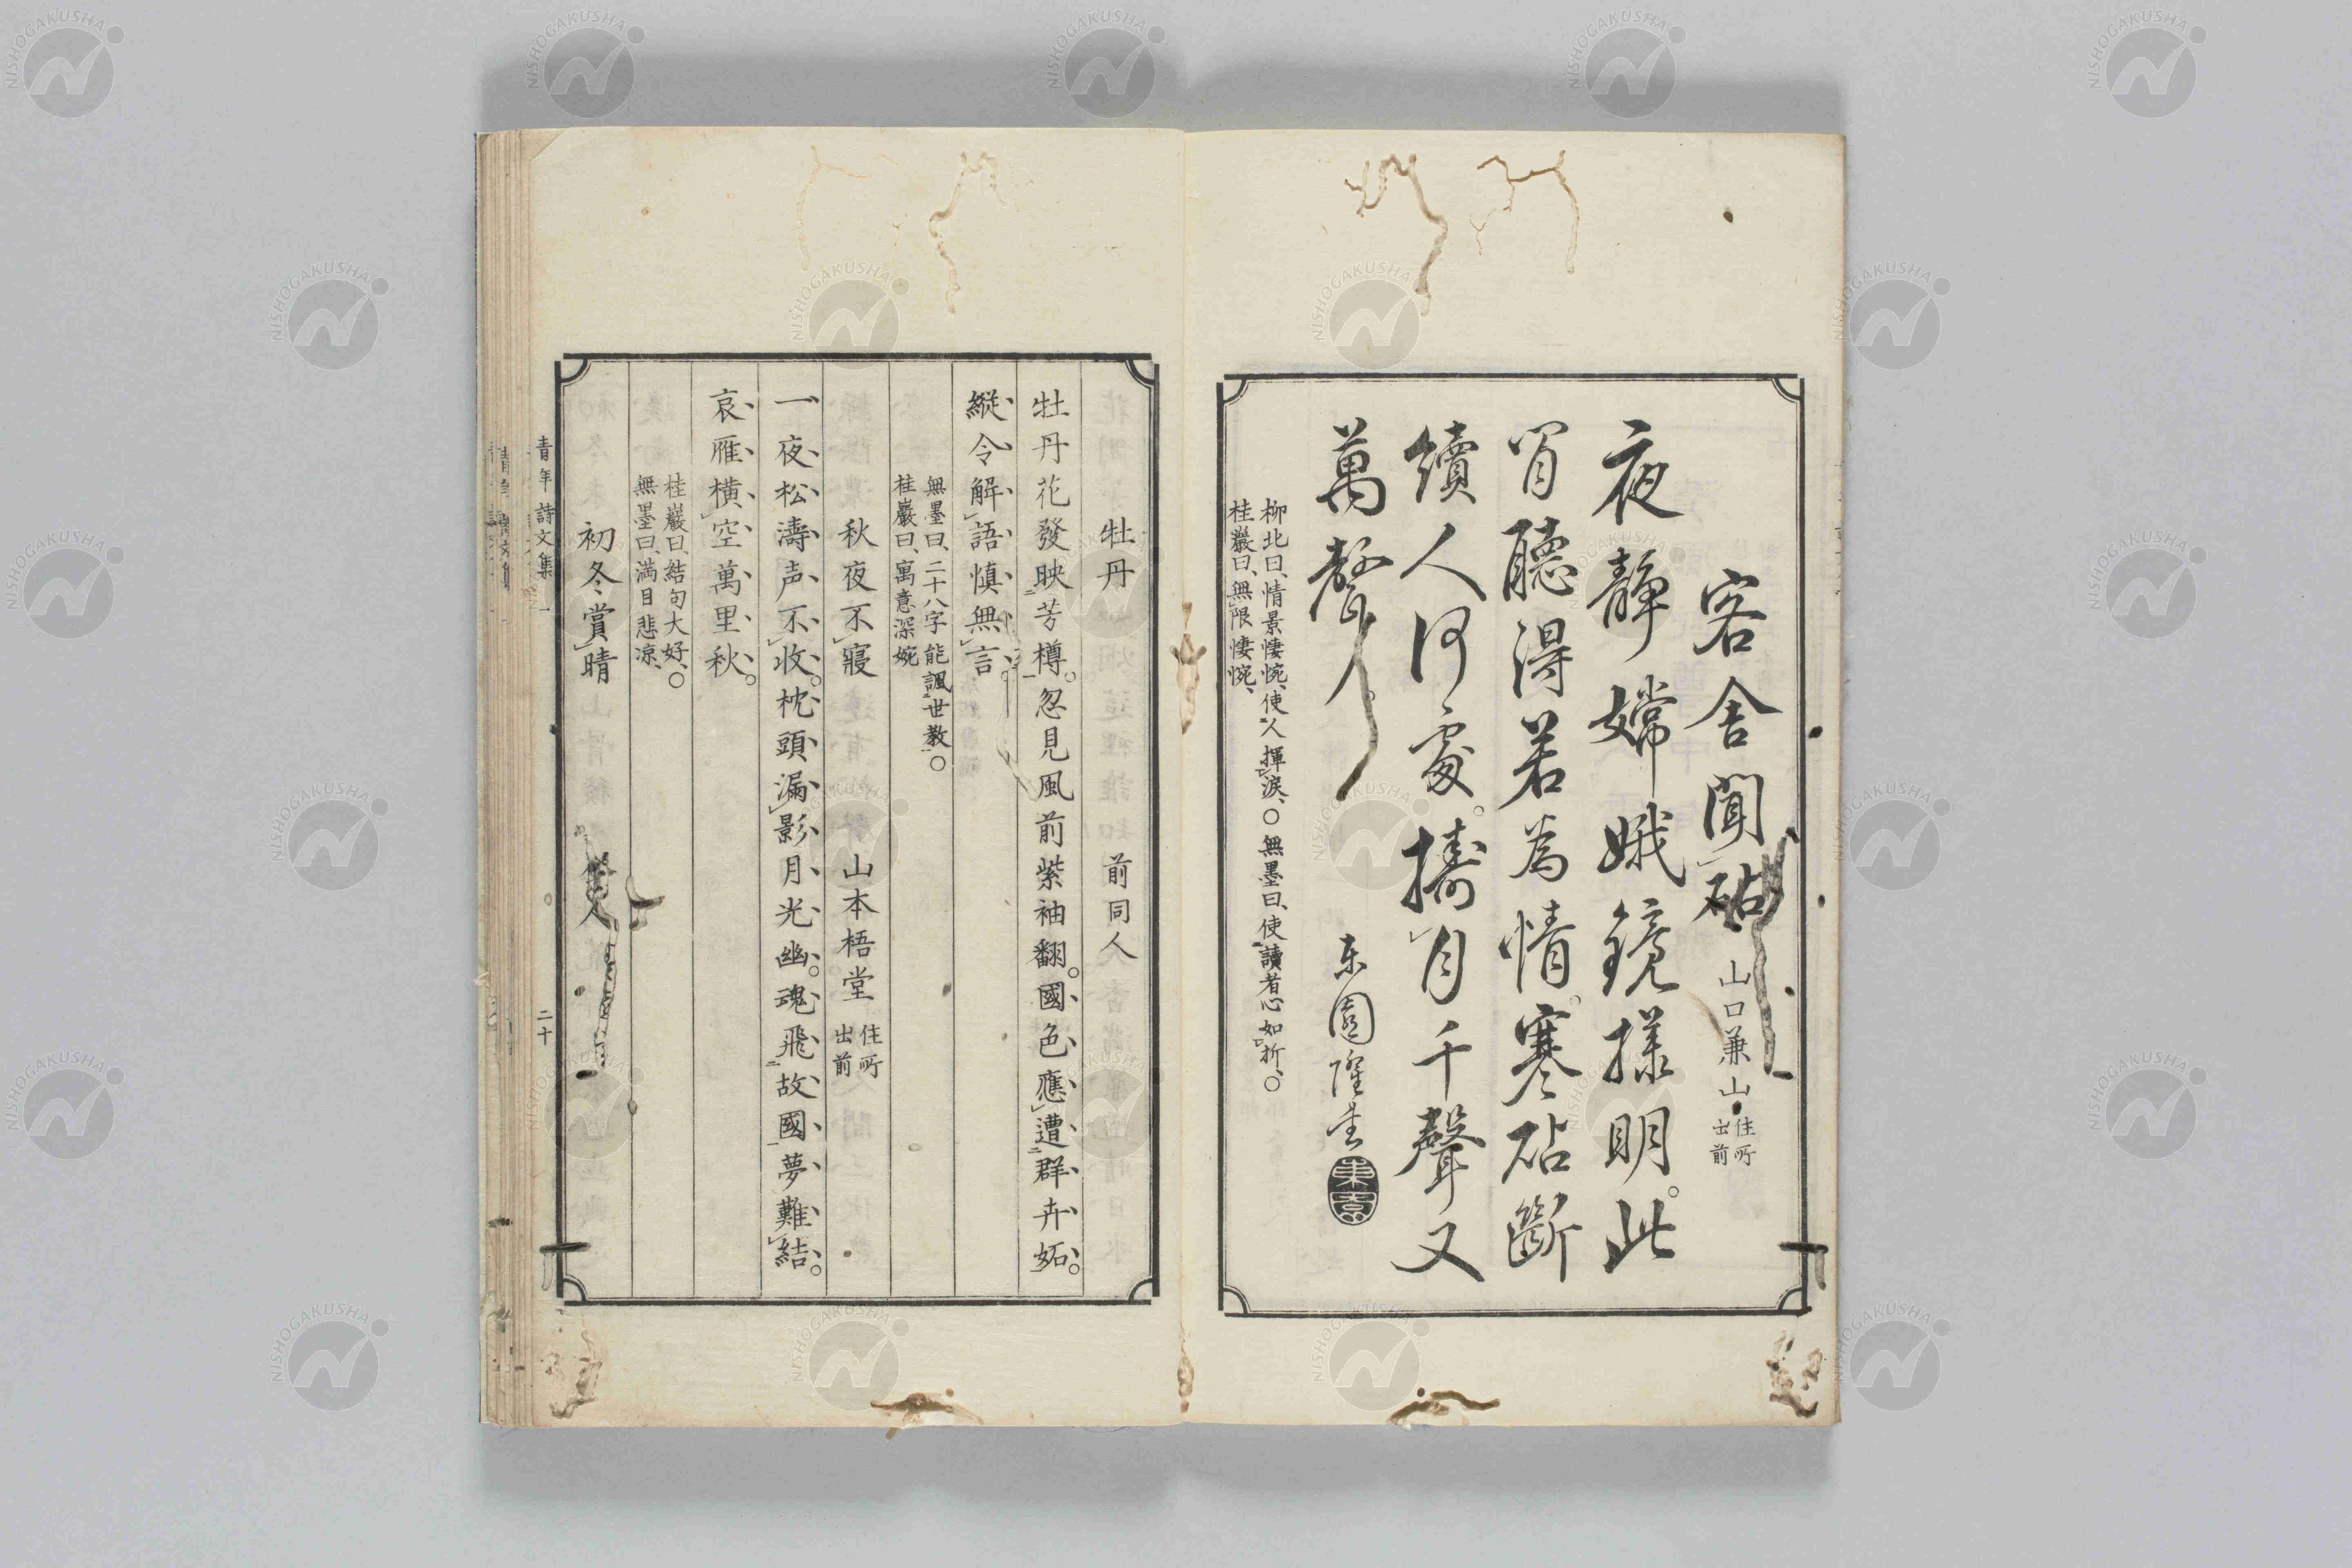 客舎聞砧 山口兼山 住所出前
夜静嫦娥鏡様明。此
宵聽得若為情。寒砧斷
續人何處。擣月千聲又
萬聲。
東園隆書
柳北曰、情景悽惋、使人揮涙、○無墨曰、使讀者心如折、○
桂巖曰、無限悽惋、
牡丹 前同人
牡丹花發映芳樽。忽見風前紫袖翻。國色應遭群卉妬。
縦令解語慎無言。
無墨曰、二十八字能諷世教、○
桂巖曰、寓意深婉
秋夜不寢 山本梧堂 住所出前
一夜松濤声不收。枕頭漏影月光幽。魂飛故國夢難結。
哀雁横空萬里秋。
桂巖曰、結句大好、○
無墨曰、満目悲凉、
初冬賞晴 人
青年詩文集 一 二十
NISHOGAKUSHA